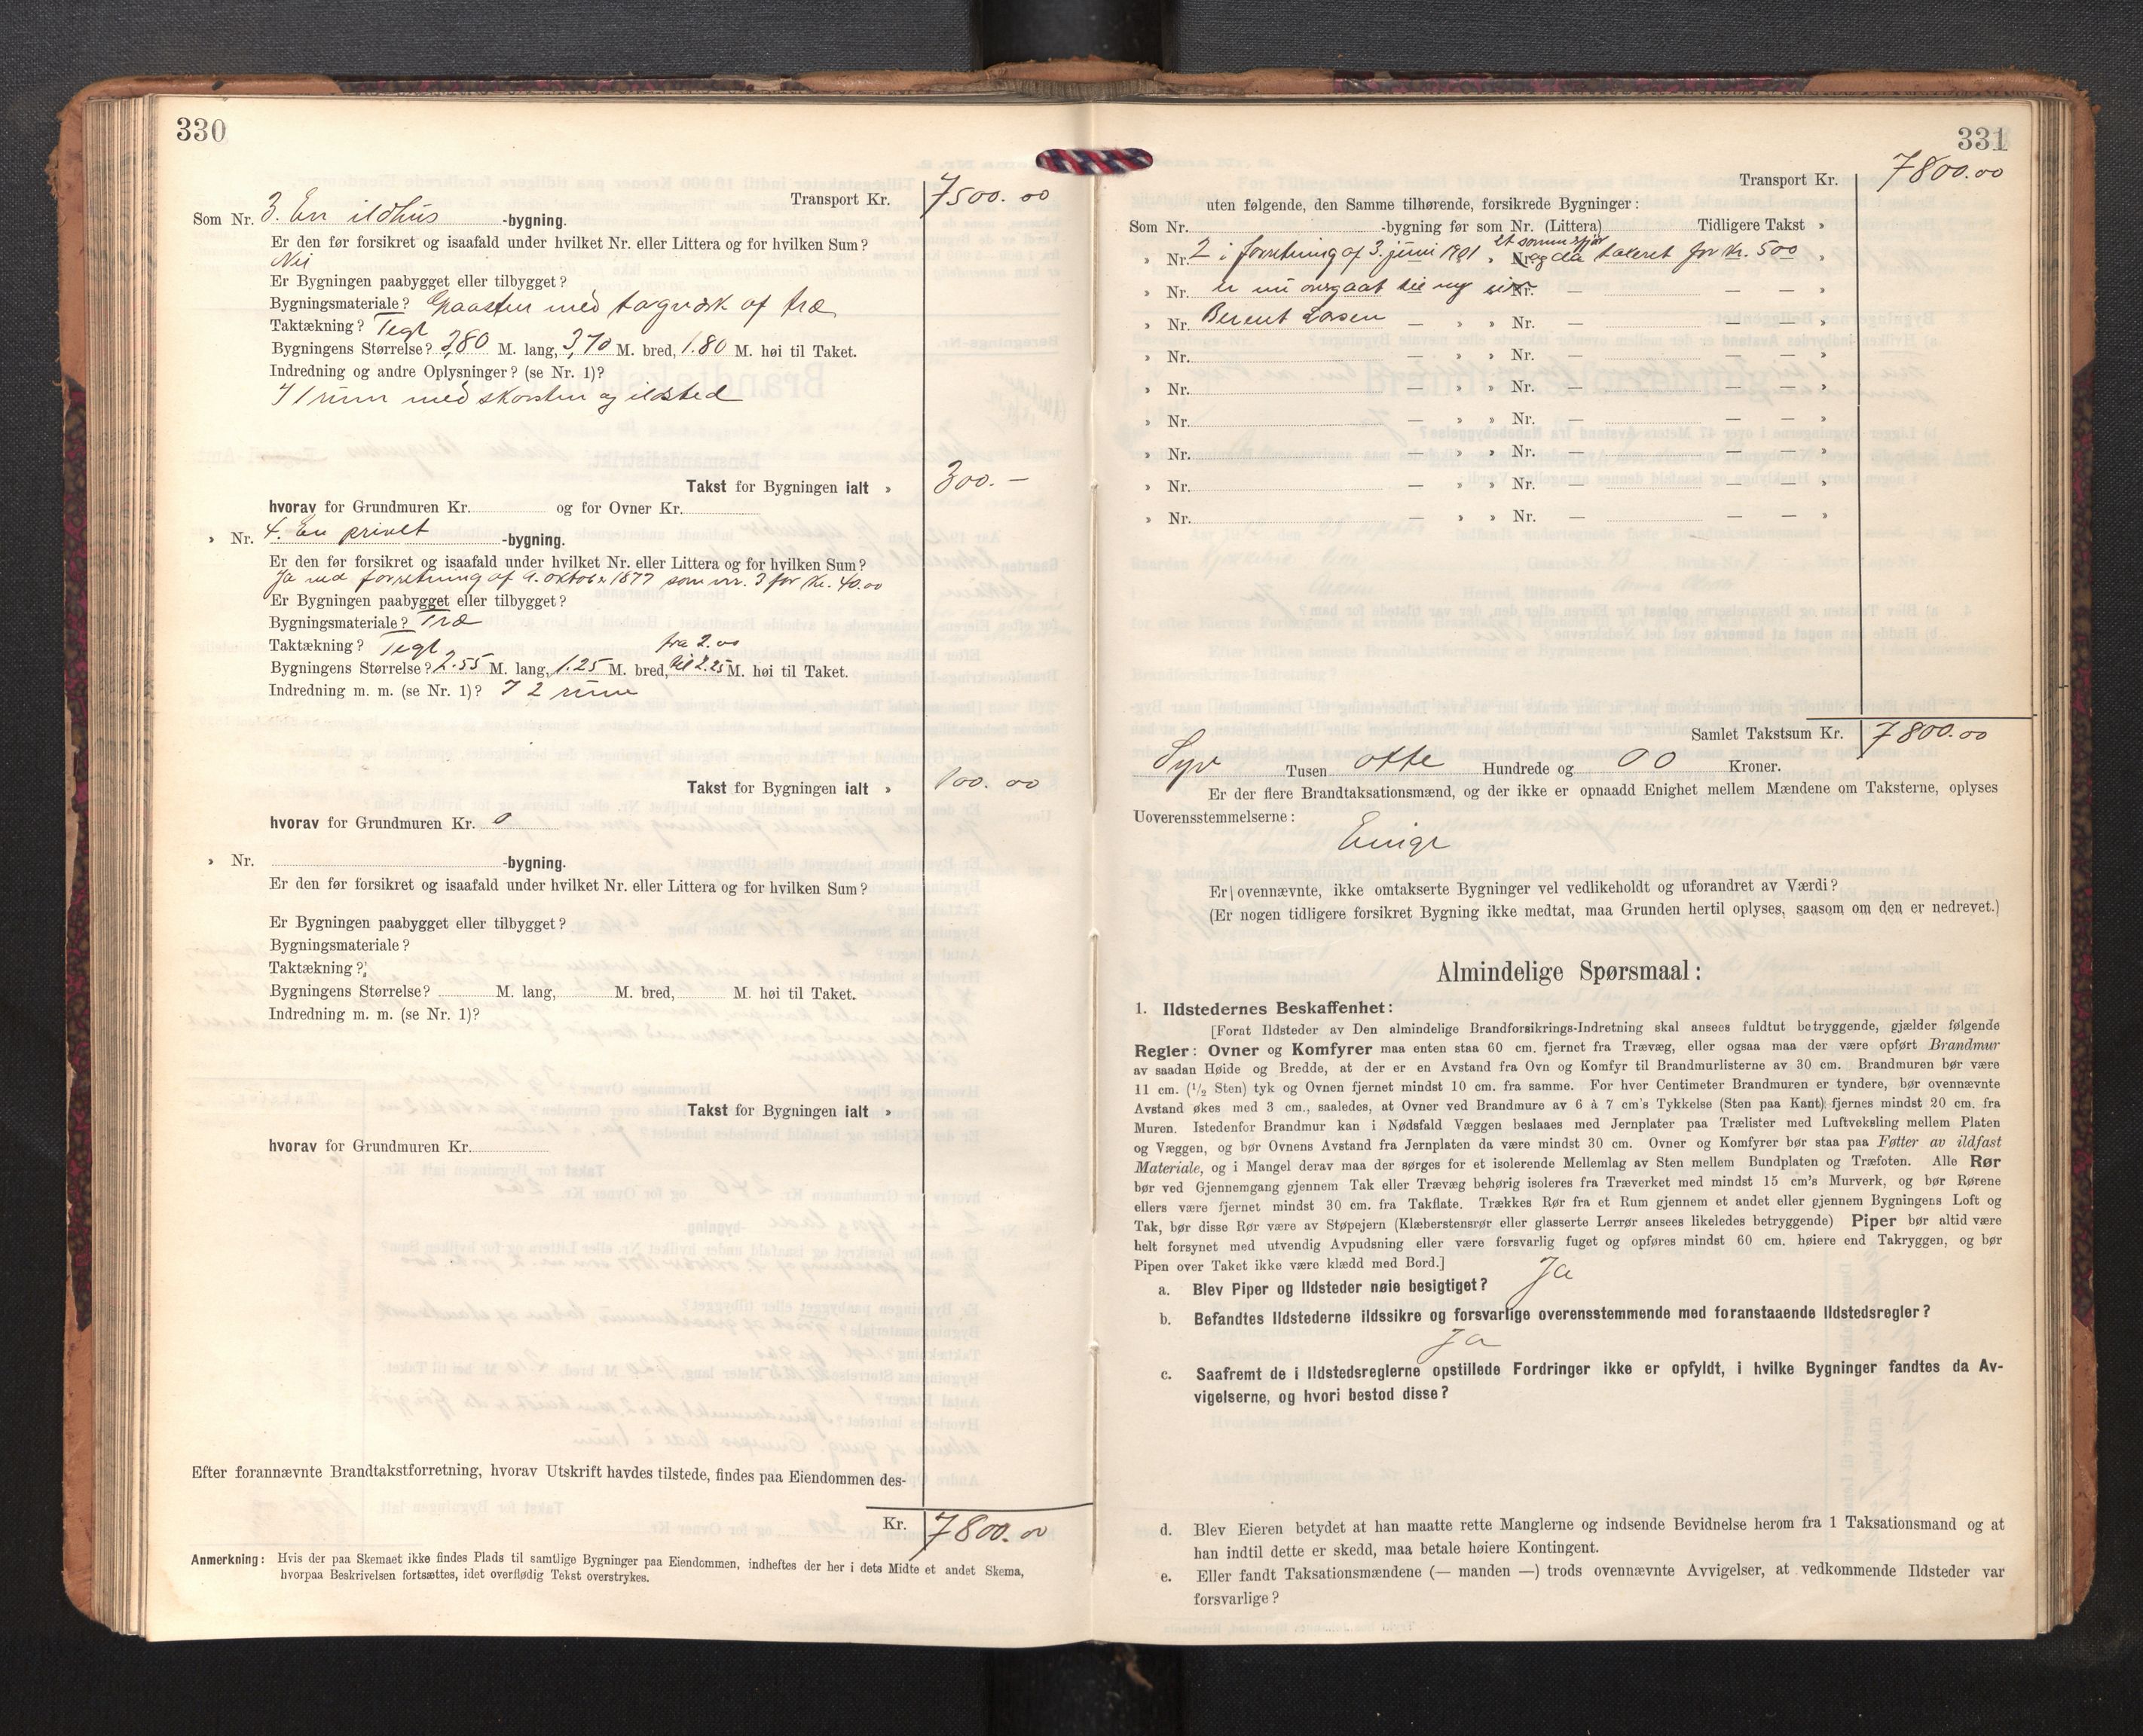 330
Transport Kr. 7500.00
Som Nr. 3. En ildhus -bygning.
Er den før forsikret og isaafald under hvilket Nr. eller Littera og for hvilken Sum?
Nei
Er Bygningen paabygget eller tilbygget?
Bygningsmateriale? Graasten med tagverk af træ
Taktækning? Tegl
Bygningens Størrelse? 3,80 M. lang, 3,70 M. bred, 1.80 M. høi til Taket.
Indredning og andre Oplysninger? (se Nr. 1)?
I 1 rum med skorsten og ildsted
Takst for Bygningen ialt » 300.—
hvorav for Grundmuren Kr. og for Ovner Kr.
» Nr. 4. En privet -bygning.
Er den før forsikret og isaafald under hvilket Nr. eller Littera og for hvilken Sum?
Ja ved forretning af 9. oktober 1877 som nr. 3 for Kr. 40.00
Er Bygningen paabygget eller tilbygget?
Bygningsmateriale? Træ
Taktækning? Tegl fra 2.00
Bygningens Størrelse? 2.55 M. lang, 1.25 M. bred, til 2.25 M. høi til Taket.
Indredning m. m. (se Nr. 1)? I 2 rum
Takst for Bygningen ialt » 100.00
hvorav for Grundmuren Kr. 0
» Nr. -bygning.
Er den før forsikret og isaafald under hvilket Nr. eller Littera og for hvilken Sum?
Er Bygningen paabygget eller tilbygget?
Bygningsmateriale?
Taktækning?
Bygningens Størrelse? M. lang, M. bred, M. høi til Taket.
Indredning m. m. (se Nr. 1)?
Takst for Bygningen ialt »
hvorav for Grundmuren Kr.
Efter forannævnte Brandtakstforretning, hvorav Utskrift havdes tilstede, findes paa Eiendommen des-
Kr. 7800.00
Anmerkning: Hvis der paa Skemaet ikke findes Plads til samtlige Bygninger paa Eiendommen, indheftes der her i dets Midte et andet Skema,
hvorpaa Beskrivelsen fortsættes, idet overflødig Tekst overstrykes.
331
Transport Kr. 7800.00
uten følgende, den Samme tilhørende, forsikrede Bygninger:
Som Nr. -bygning før som Nr. (Littera) Tidligere Takst »
et sommerfjør
» Nr. 2 i forretning af 3. juni 1901 » Nr. og da taxeret for Kr. 500 »
» Nr. er nu overgaat til ny eier Nr. — — — »
» Nr. Berent Larsen — » » Nr. — — — »
» Nr. — » » Nr. — — — »
» Nr. — » » Nr. — — — »
» Nr. — » » Nr. — — — »
» Nr. — » » Nr. — — — »
» Nr. — » » Nr. — — — »
» Nr. — » » Nr. — — — »
Samlet Takstsum Kr. 7800.00
Syv Tusen otte Hundrede og 00 Kroner.
Er der flere Brandtaksationsmænd, og der ikke er opnaadd Enighet mellem Mændene om Taksterne, oplyses
Uoverensstemmelserne:
Enige
Er ovennævnte, ikke omtakserte Bygninger vel vedlikeholdt og uforandret av Værdi?
(Er nogen tidligere forsikret Bygning ikke medtat, maa Grunden hertil oplyses, saasom om den er nedrevet.)
Almindelige Spørsmaal:
1. Ildstedernes Beskaffenhet:
[Forat Ildsteder av Den almindelige Brandforsikrings-Indretning skal ansees fuldtut betryggende, gjælder følgende
Regler: Ovner og Komfyrer maa enten staa 60 cm. fjernet fra Trævæg, eller ogsaa maa der være opført Brandmur
av saadan Høide og Bredde, at der er en Avstand fra Ovn og Komfyr til Brandmurlisterne av 30 cm. Brandmuren bør være
11 cm. (1/2 Sten) tyk og Ovnen fjernet mindst 10 cm. fra samme. For hver Centimeter Brandmuren er tyndere, bør ovennævnte
Avstand økes med 3 cm., saaledes, at Ovner ved Brandmure av 6 à 7 cm's Tykkelse (Sten paa Kant) fjernes mindst 20 cm. fra
Muren. Istedenfor Brandmur kan i Nødsfald Væggen beslaaes med Jernplater paa Trælister med Luftveksling mellem Platen
og Væggen, og bør Ovnens Avstand fra Jernplaten da være mindst 30 cm. Ovner og Komfyrer bør staa paa Føtter av ildfast
Materiale, og i Mangel derav maa der sørges for et isolerende Mellemlag av Sten mellem Bundplaten og Træfoten. Alle Rør
bør ved Gjennemgang gjennem Tak eller Trævæg behørig isoleres fra Træverket med mindst 15 cm's Murverk, og bør Rørene
ellers være fjernet mindst 30 cm. fra Takflate. Trækkes Rør fra et Rum gjennem et andet eller gjennem Bygningens Loft og
Tak, bør disse Rør være av Støpejern (Klæberstensrør eller glasserte Lerrør ansees likeledes betryggende) Piper bør altid være
helt forsynet med utvendig Avpudsning eller være forsvarlig fuget og opføres mindst 60 cm. høiere end Takryggen, og bør
Pipen over Taket ikke være klædd med Bord.]
a. Blev Piper og Ildsteder nøie besigtiget? Ja
b. Befandtes Ildstederne ildssikre og forsvarlige overensstemmende med foranstaaende Ildstedsregler?
Ja
c. Saafremt de i Ildstedsreglerne opstillede Fordringer ikke er opfyldt, i hvilke Bygninger fandtes da Av-
vigelserne, og hvori bestod disse?
d. Blev Eieren betydet at han maatte rette Manglerne og indsende Bevidnelse herom fra 1 Taksationsmand og at
han indtil dette er skedd, maa betale høiere Kontingent.
e. Eller fandt Taksationsmændene (— manden —) trods ovennævnte Avvigelser, at vedkommende Ildsteder var
forsvarlige?